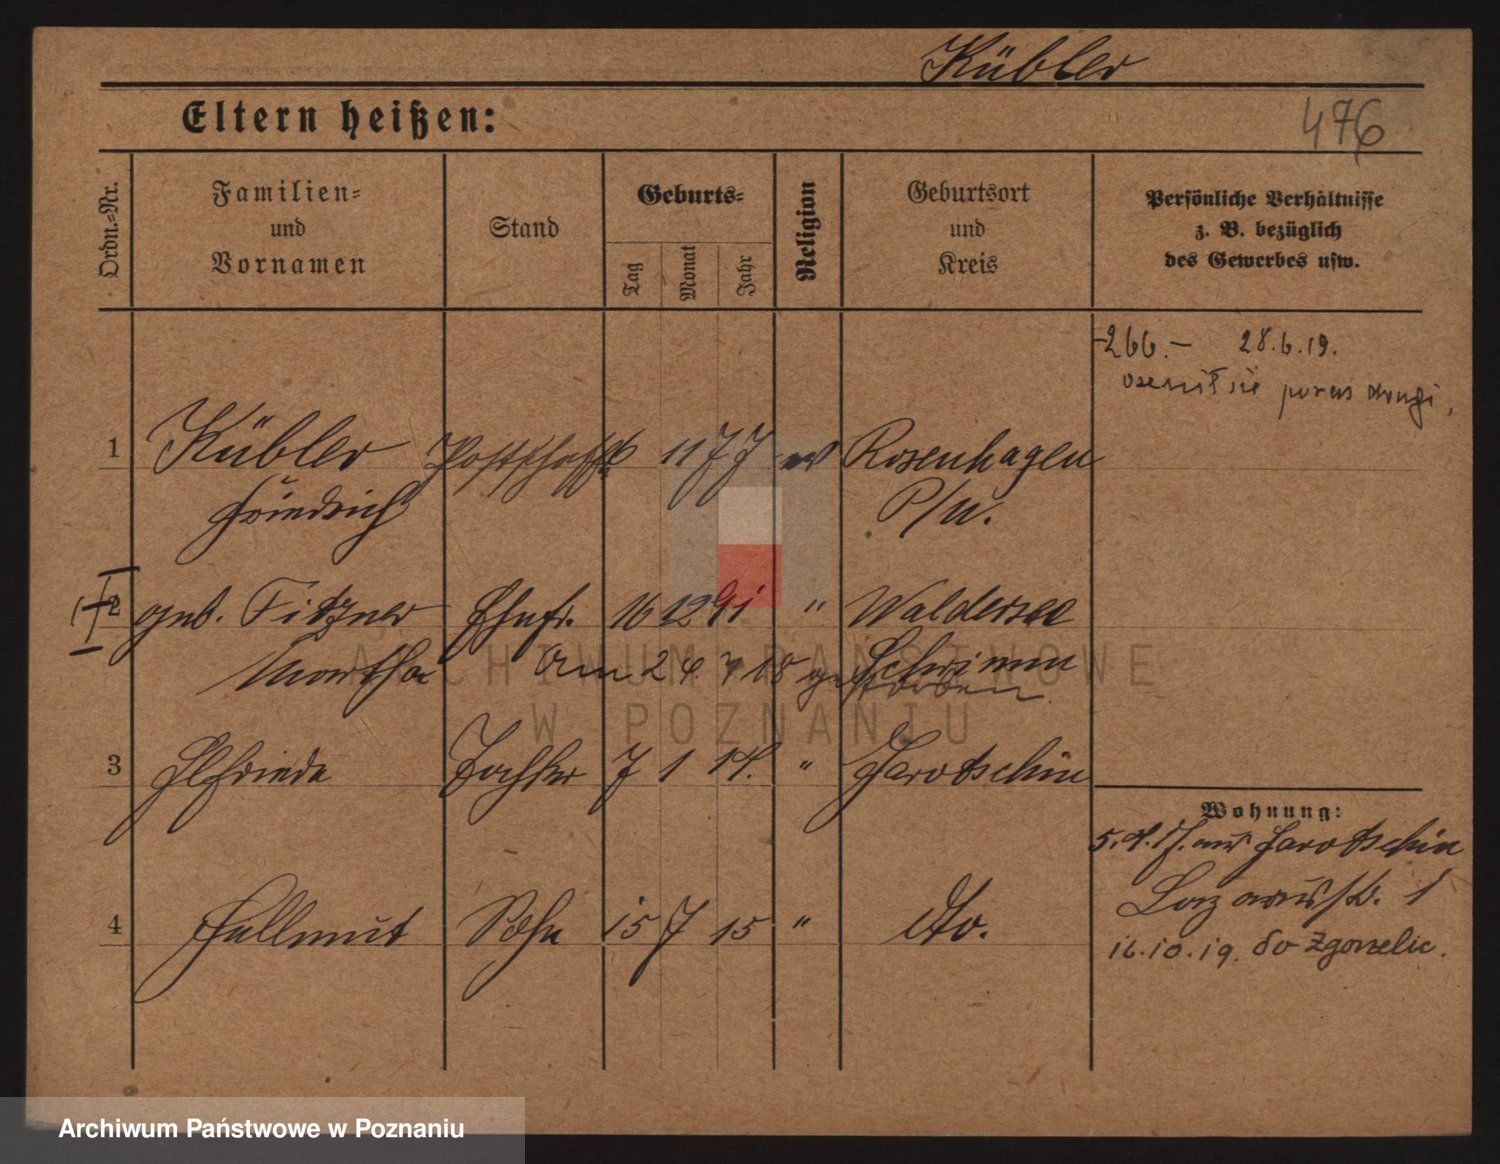 Kübler
Eltern heißen:
476
Ordn.-Nr.
Familien-
und
Vornamen
Stand
Geburts-
Tag
Monat
Jahr
Religion
Geburtsort
und
Kreis
Persönliche Verhältnisse
z. B. bezüglich
des Gewerbes usw.
266.- 28.6.19.
ożenił się poraz drugi.
1 Kübler Postschaffn 6 11 77 ev Rosenhagen
Friedrich P/W.
II
2 geb. Fitzner Ehefr. 16 12 91 " Waldersee
Martha Am 24.7.18 gestorben Schrimm
3 Elfriede Tochter 7 1 14. " Jarotschin
Wohnung:
5.4.17. aus Jarotschin
Lazarusstr. 1
4 Hellmut Sohn 15 7 15 " dto.
16.10.19. do Zgorzelic.
ARCHIWUM PAŃSTWOWE
W POZNANIU
Archiwum Państwowe w Poznaniu